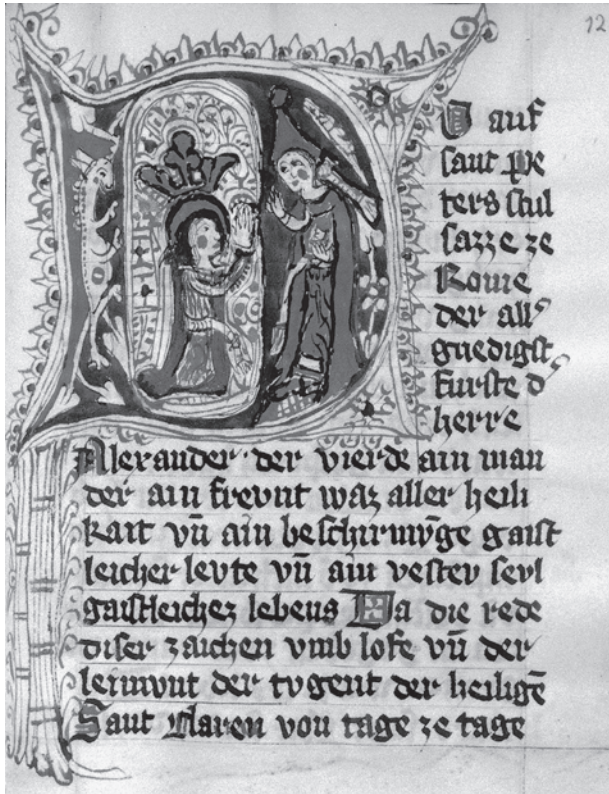 12
Do auf
sant Pe
ters stul
sazze ze
Rome
der all᾽
gnedigst
furste d᾽
herre
Alexander · der vierde ain man
der ain frevnt waz aller heili
kait vn̄ ain beschirmvn̄ge gaist
leicher levte vn̄ ain vestev sevl
gaistleichez lebens Da die rede
diser zaichen vmb lofe vn̄ der
leimvnt der tvgent der heiligē
Sant Claren von tage ze tage